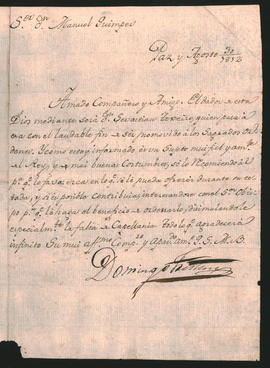 S.or Dn. Manuel Quimper
Paz y Agosto 30/1813
Amado Compañero y Amigo. El dador de esta
Dios mediante será Dn. Sevastian quien pasa á
esa con el laudable fin de ser promovido á los Sagrados Or-
denes. Y como estoy informado de un Sugeto mui fiel y am.te
al Rey, y de mui buenas Costumbres, se lo Recomiendo á
pa. qe. lo favoresca en lo qe. lo pueda ofrecer durante su es-
tada, y si es posible contribuia interesandose con el S.or Obis-
po pa. qe. le haga el beneficio de ordenarlo, disimulandole
especialmte. la falta de Capellania todo lo qe. agradecerá
infinito Su mui affmo. Comp.ro y Amo. Q. S. M. B.
Domingo